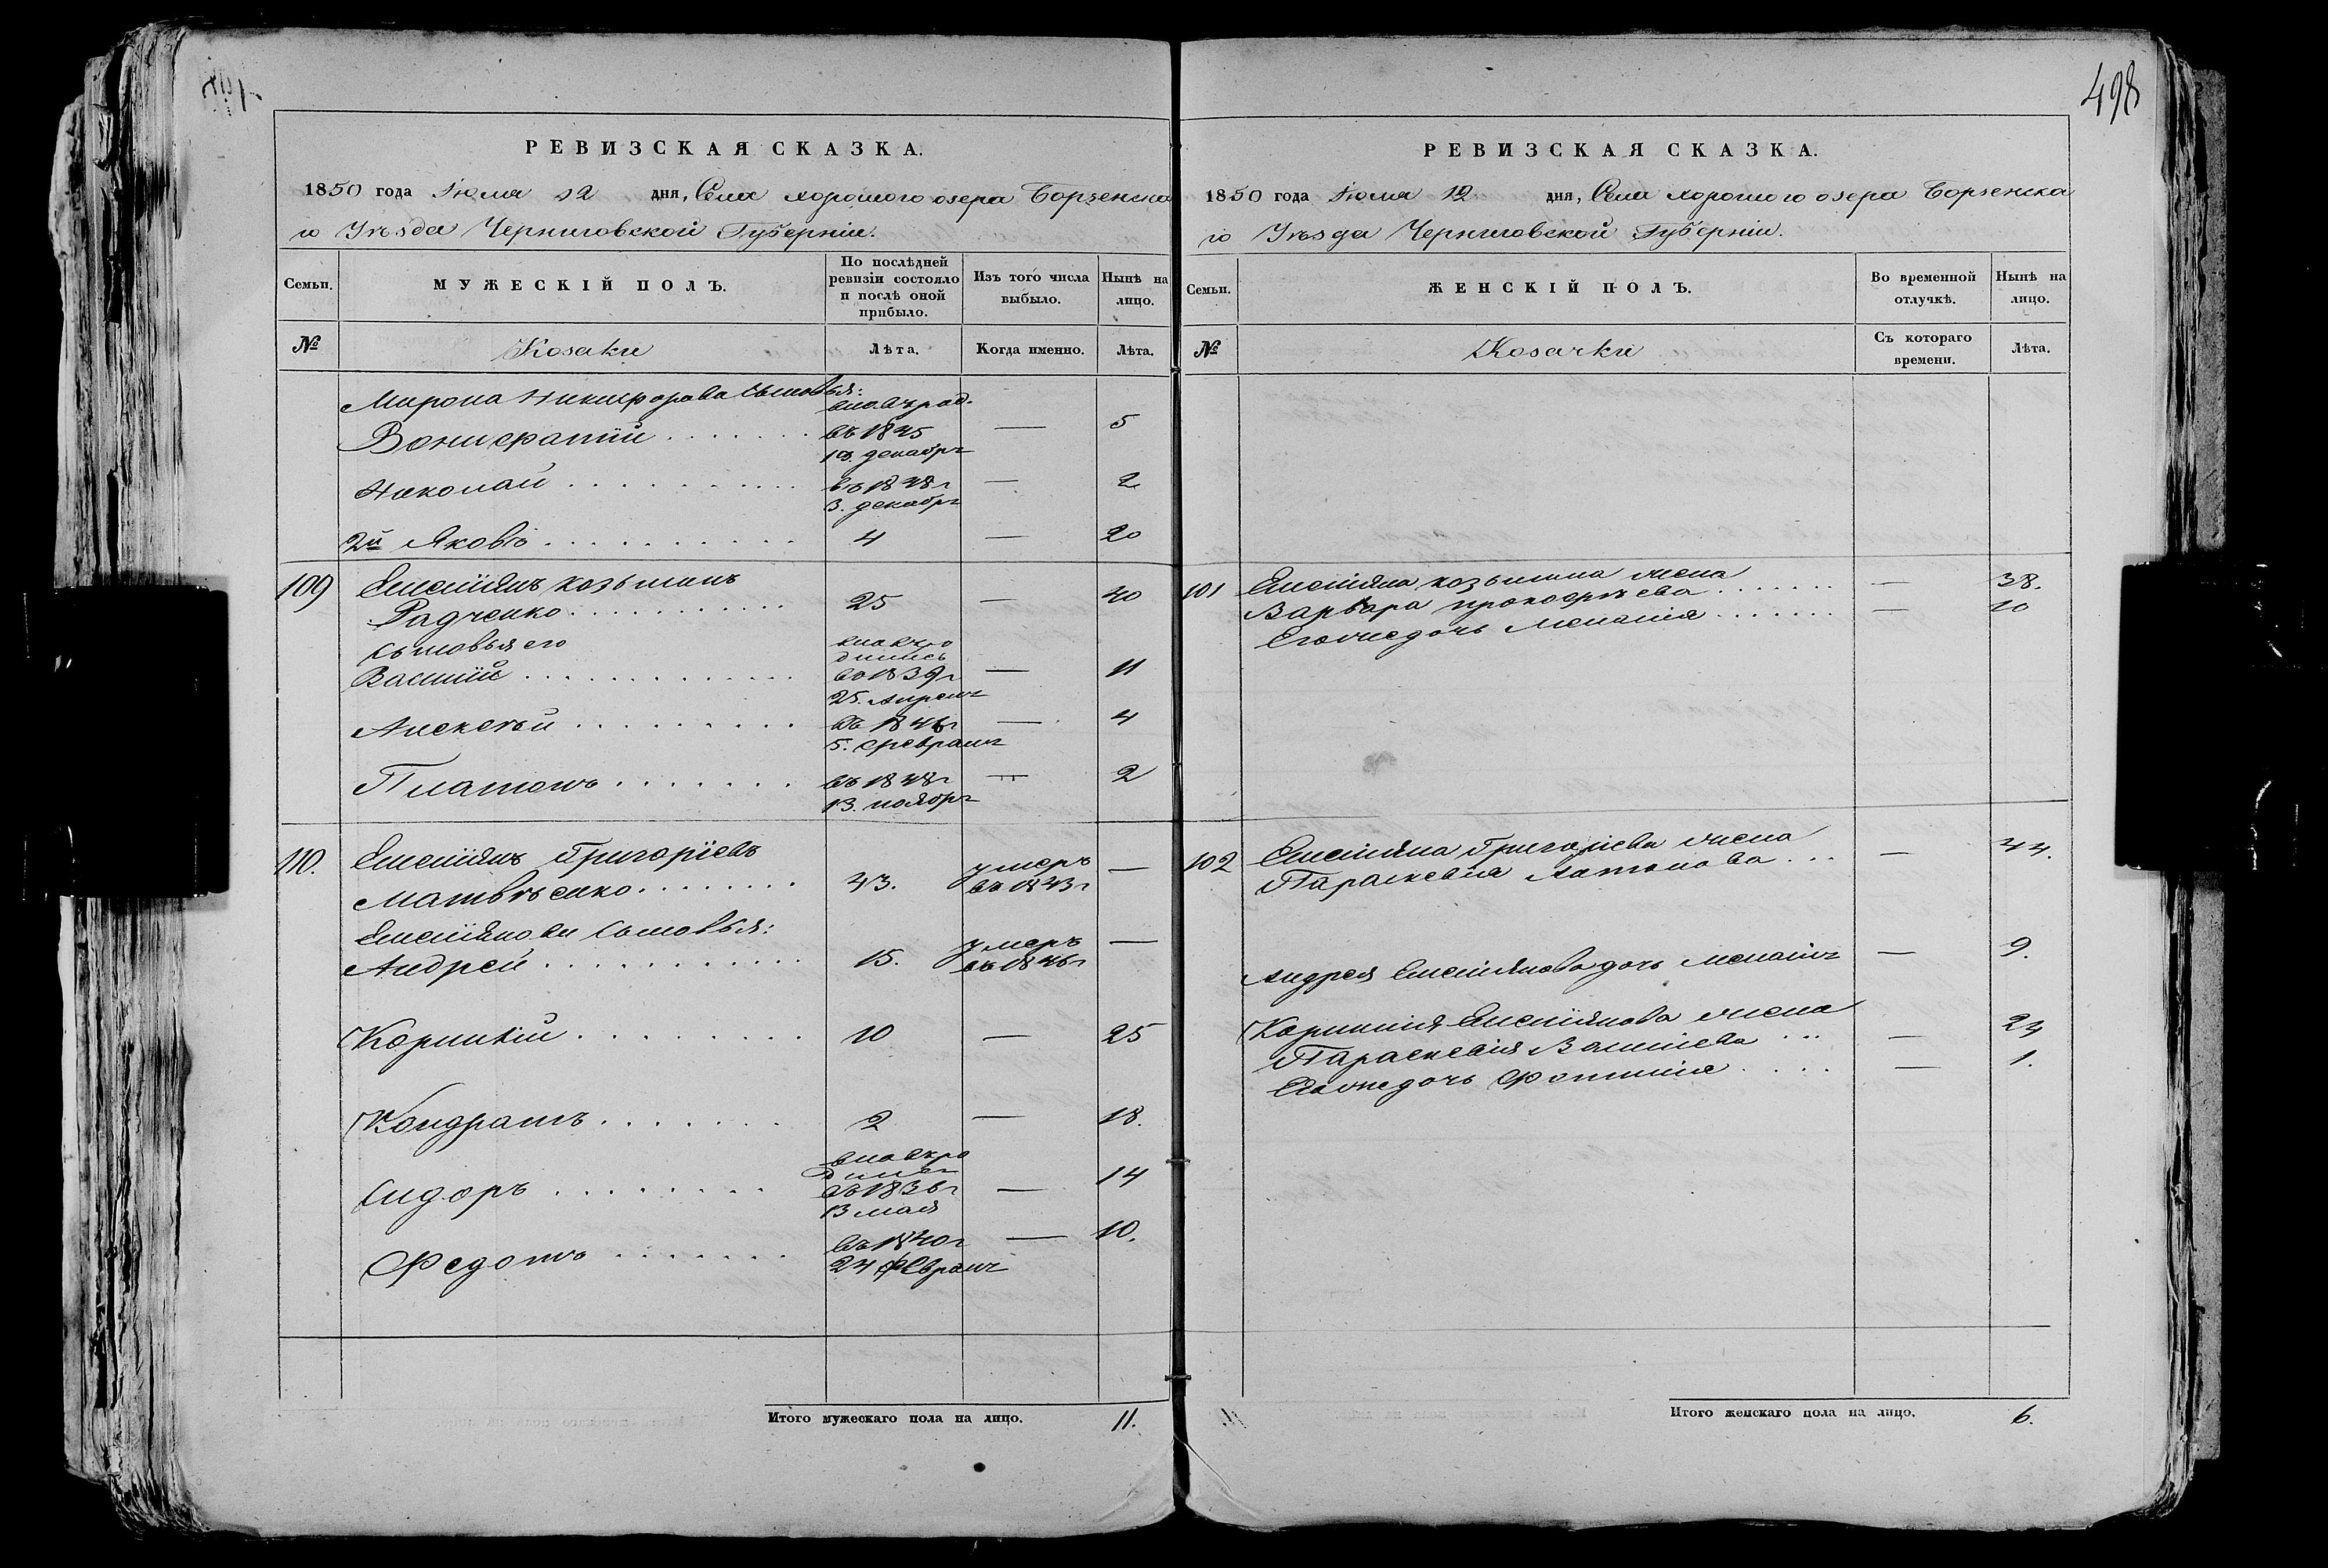 498
РЕВИЗСКАЯ СКАЗКА.
1850 года Іюля 12 дня, Села хорошого озера Борзенска
го Уѣзда Черниговской Губерніи.
Семьи.
МУЖЕСКІЙ ПОЛЪ.
По послѣдней ревизіи состояло и послѣ оной прибыло.
Изъ того числа выбыло.
Нынѣ на лицо.
№
Козаки
Лѣта.
Когда именно.
Лѣта.
Мирона Никифорова сыновья:
Вонифатий . . . . . . . вновь род. въ 1845 13. декабря — 5
Николай . . . . . . . . . . въ 1848 г 3. декабря — 2
2й Яковъ . . . . . . . . . . 4 — 20
109 Емелиянъ козьминъ
Радченко . . . . . . . . . . . 25 — 40
сыновья его
Василий . . . . . . . . . . . . . вновь ро дились въ 1839 г 25. Апреля — 11
Алексѣй . . . . . . . . . въ 1846 г 5. февраля — 4
Платонъ . . . . . . . въ 1848 г 13. ноября — 2
110. Емелиянъ Григориевъ
Матвѣенко . . . . . . . . 43. умеръ въ 1843 г —
Емелиянови сыновья:
Андрей . . . . . . . . . . . 15. умеръ въ 1846 г —
Корнилий . . . . . . . . . 10 — 25
Кондратъ . . . . . . . 2 — 18.
Сидоръ . . . . . . . . вновь ро дился въ 1836 г 13 мая — 14
Федотъ . . . . . . . въ 1840 г 24 февраля — 10.
Итого мужескаго пола на лицо. 11.
РЕВИЗСКАЯ СКАЗКА.
1850 года Іюля 12 дня, Села хорошого озера Борзенска
го Уѣзда Черниговской Губерніи.
Семьи.
ЖЕНСКІЙ ПОЛЪ.
Во временной отлучкѣ.
Нынѣ на лицо.
№
Козачки
Съ котораго времени.
Лѣта.
101 Емелияна козьмина жена
Варвара прокофѣева . . . . . . . — 38.
Егожедочь Мелания . . . . . . . — 10
102 Емелияна Григориева жена
Параскевия Антонова . . . — 44.
Андрея Емелиянова дочь Мелания — 9.
Корнилия Емелиянова жена
Параскевия Василиева . . . — 24
Егожедочь Фотиния . . . . — 1.
Итого женскаго пола на лицо. 6.